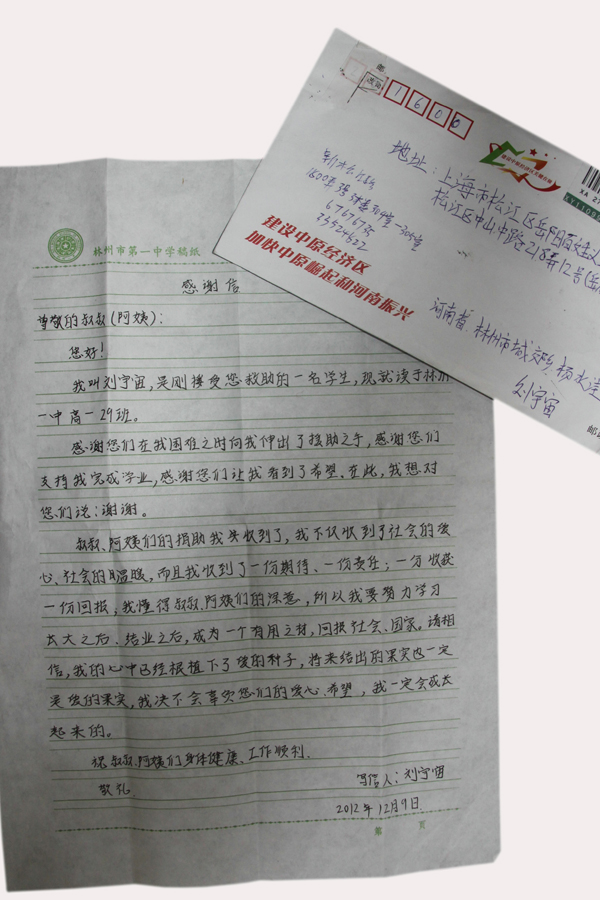 林州市第一中学稿纸
感谢信
尊敬的叔叔(阿姨):
您好!
我叫刘宇宙,是刚接受您救助的一名学生,现就读于林州
一中高一29班。
感谢您们在我困难之时向我伸出了援助之手,感谢您们
支持我完成学业,感谢您们让我看到了希望.在此,我想对
您们说:谢谢。
叔叔、阿姨们的捐助我失收到了,我不仅收到了社会的爱
心、社会的温暖,而且我收到了一份期待、一份责任;一分收获
一份回报,我懂得叔叔、阿姨们的深意,所以我要努力学习
长大之后.结业之后,成为一个有用之材,回报社会、国家。请相
信,我的心中已经根植下了爱的种子,将来结出的果实也一定
是爱的果实,我决不会辜负您们的爱心.希望,我一定会成长
起来的。
祝叔叔.阿姨们身体健康、工作顺利.
敬礼
写信人:刘宇宙
2012年12月9日.
第 页
邮
1600
建设中原经济区大题材
地址:上海市松江区岳阳
松江区中山中路218弄12号
1600弄
67676735
33524622
建设中原经济区
加快中原崛起和河南振兴
XA 27
河南省.林州市城
刘宇宙
邮